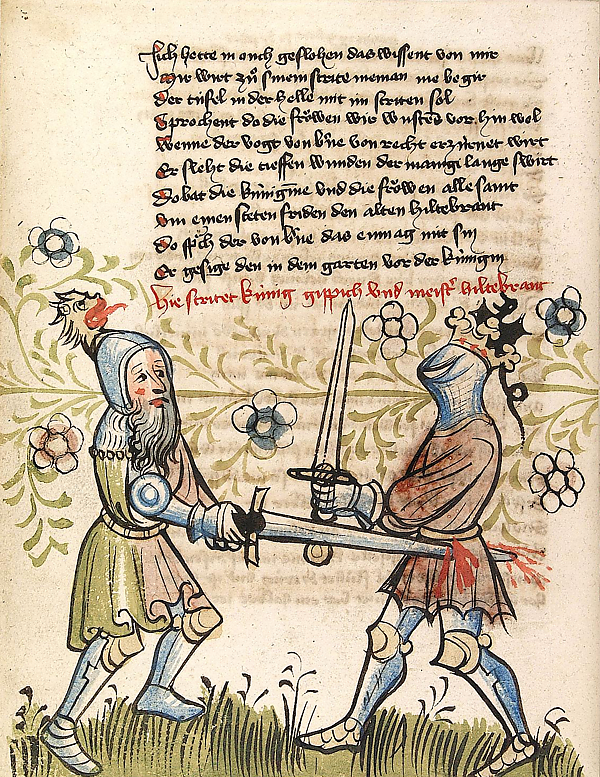 Sich hette in ouch geflohen das wissent von mir
Mir wirt zů sinem strite nieman nie begir
Der tüfel in der helle mit im striten sol
Sprochent do die fröwen wir wusten vor hin wol
Wenne der vogt von b'ne von recht erzürnet wirt
Er sleht die tieffen wunden der manige lange swirt
Do bat die künigīne vnd die fröwen alle samt
Vm einen steten friden den alten hiltebrant
Do sp'ch der von b'ne das en mag nit sin
Er gesige den in dem garten vor der künigin
Hie stritet künig gippich vnd meist' hiltebrant